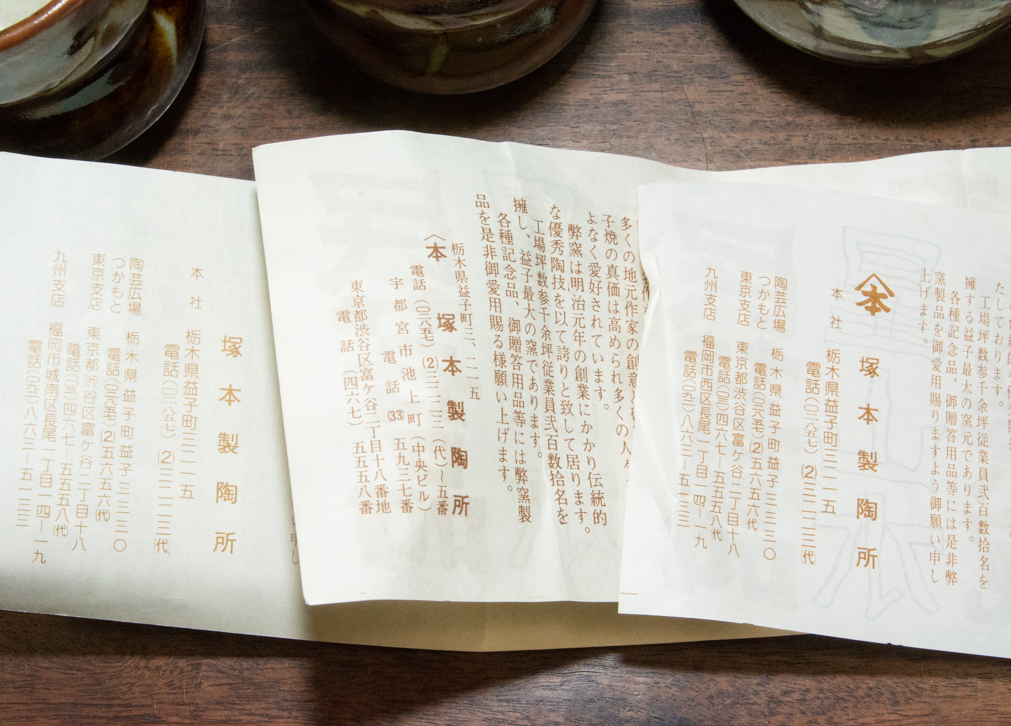 塚本製陶所
本社 栃木県益子町三二一五
電話(〇二八五七)(2)三二二三(代)
陶芸広場
つかもと 栃木県益子町益子三三二〇
東京支店 東京都渋谷区富ケ谷二丁目十八
九州支店 福岡市城南区長尾一丁目一四ー一九
多くの地元作家の創意と
子焼の真価は高められ多くの人々
よなく愛好されています。
弊窯は明治元年の創業にかかり伝統的
な優秀陶技を以て誇りと致して居ります。
工場坪数参千余坪従業員弐百数拾名を
擁し、益子最大の窯であります。
各種記念品、御贈答用品等には弊窯製
品を是非御愛用賜る様願い上げます。
栃木県益子町三、二一五
本 塚本製陶所
宇都宮市池上町(中央ビル)
電話(33)五九三七番
東京都渋谷区富ケ谷二丁目十八番地
電話(四六七)五五五八番
たしております。
工場坪数参千余坪従業員弐百数拾名を
擁する益子最大の窯元であります。
各種記念品、御贈答用品等には是非弊
窯製品を御愛用賜りますよう御願い申し
上げます。
本 塚本製陶所
本社 栃木県益子町三二一五
電話(〇二八五七)(2)三二二三(代)
陶芸広場
つかもと 栃木県益子町益子三三二〇
東京支店 東京都渋谷区富ケ谷一丁目十八
九州支店 福岡市西区長尾一丁目一四ー一九